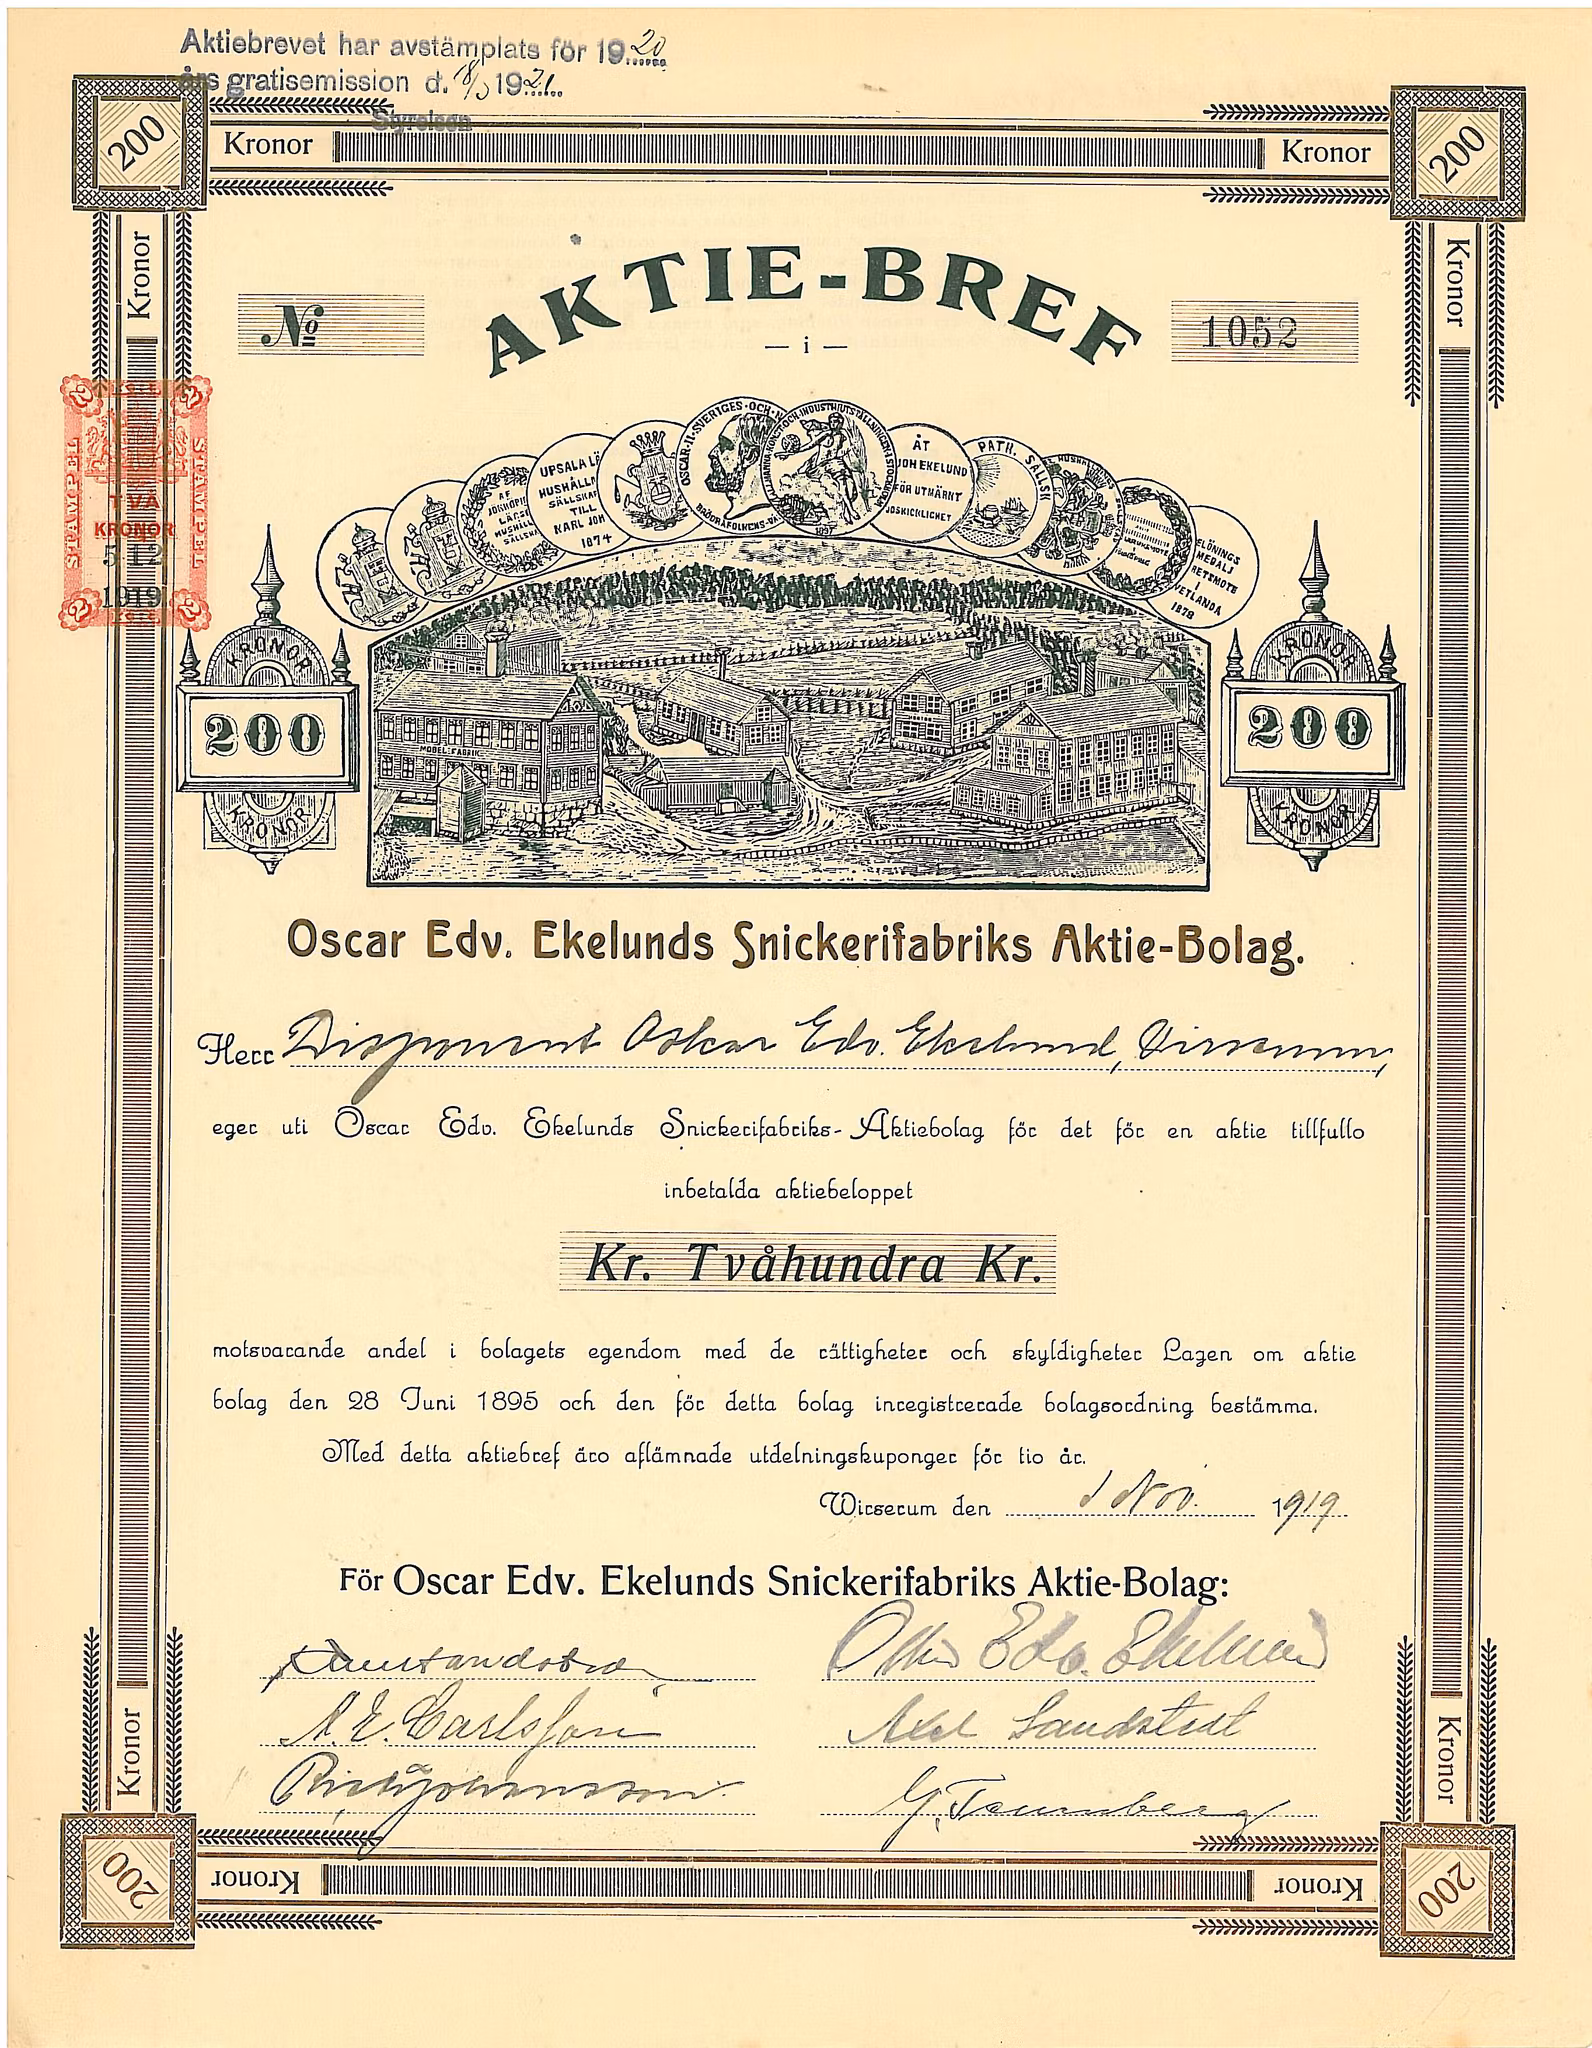 Aktiebrevet har avstämplats för 1920
års gratisemission d. 18/5 1921.
Styrelsen
200 Kronor Kronor 200
Kronor Kronor
AKTIE-BREF
No 1052
— i —
STÄMPEL STÄMPEL
2 2
TVÅ
KRONOR
5 12
1919
2 2
UPSALA LÄ
HUSHÅLLN
SÄLLSKAP
TILL
KARL JOH
1874
OSCAR·II·SVERIGES·OCH·N
BRÖDRAFOLKENS·VÄ
1897
ÅT
JOH EKELUND
FÖR UTMÄRKT
JOSKICKLIGHET
PATR. SÄLLSK
ELÖNINGS
MEDALJ
RETSMÖTE
I
VETLANDA
1878
KRONOR KRONOR
200 200
KRONOR KRONOR
MÖBEL-FABRIK
Oscar Edv. Ekelunds Snickerifabriks Aktie-Bolag.
Herr Disponent Oskar Edv. Ekelund, Virserum,
eger uti Oscar Edv. Ekelunds Snickerifabriks-Aktiebolag för det för en aktie tillfullo
inbetalda aktiebeloppet
Kr. Tvåhundra Kr.
motsvarande andel i bolagets egendom med de rättigheter och skyldigheter Lagen om aktie
bolag den 28 Juni 1895 och den för detta bolag inregistrerade bolagsordning bestämma.
Med detta aktiebref äro aflämnade utdelningskuponger för tio år.
Wirserum den 1 Nov. 1919
För Oscar Edv. Ekelunds Snickerifabriks Aktie-Bolag:
Oskar Edv. Ekelund
A. E. Carlsson Axel Sandstedt
Johansson G. Tornberg
Kronor Kronor
200 Kronor Kronor 200